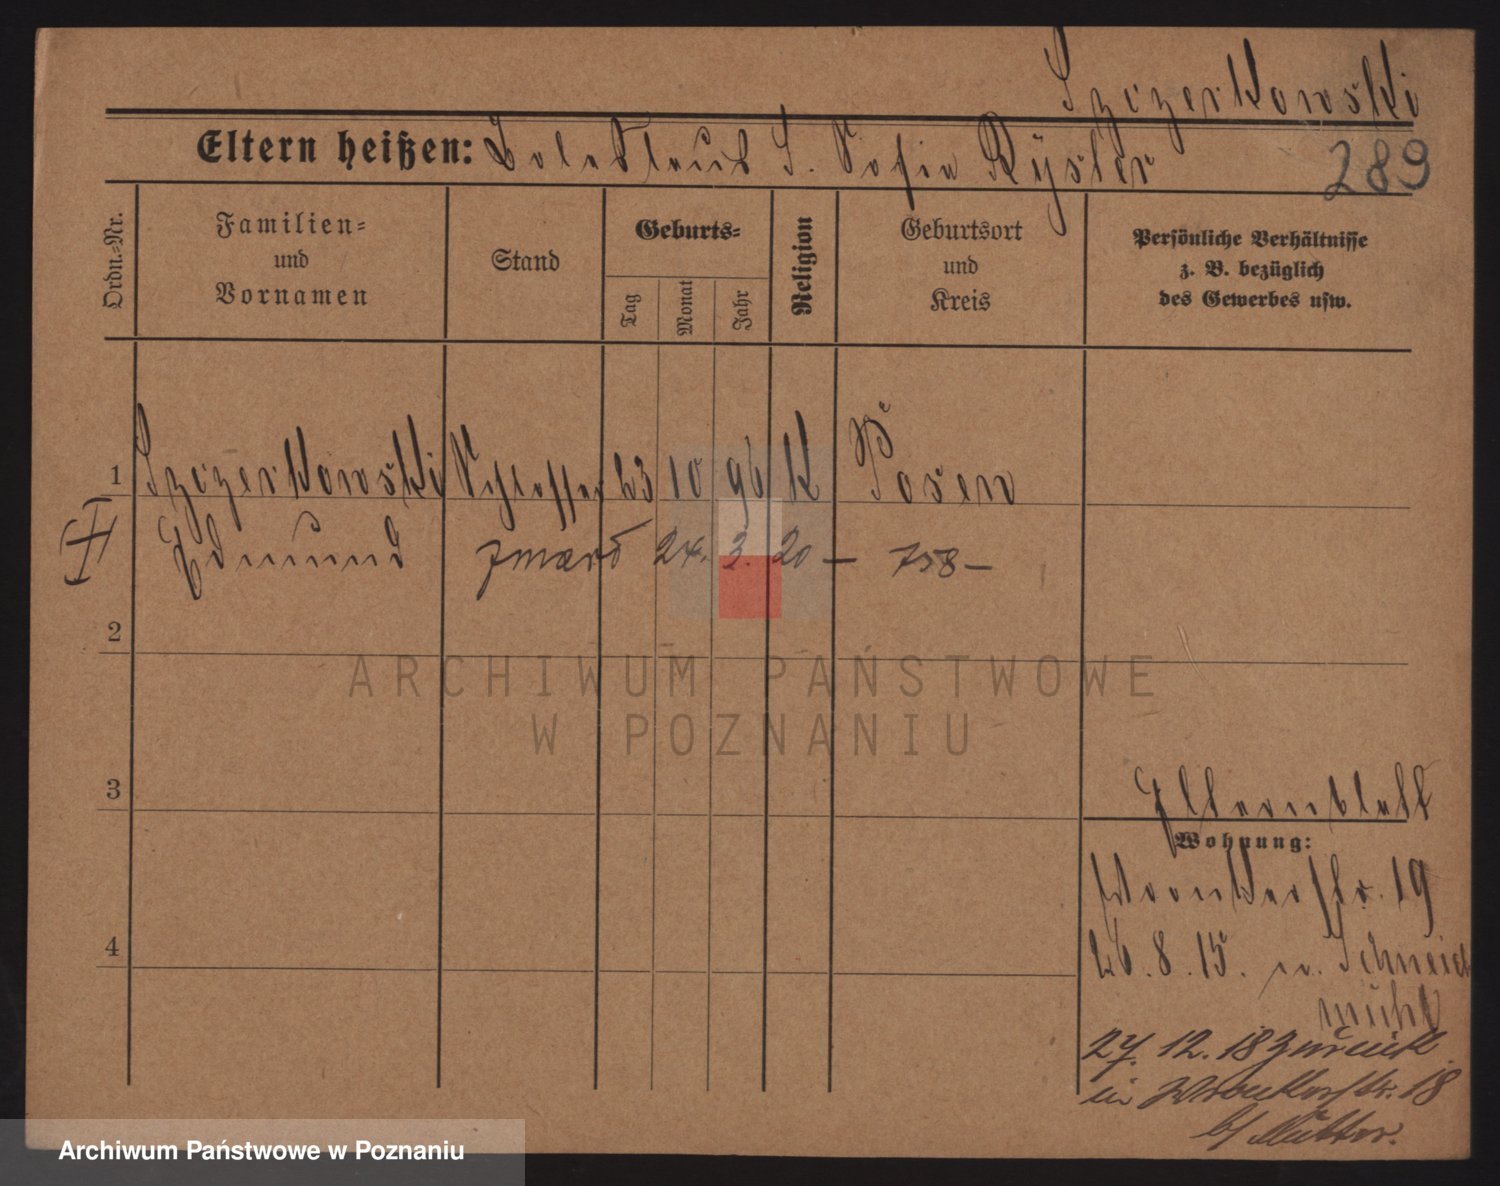 Szczerkowski
Eltern heißen: Boleslaus S. Sofia Ryster
289
Ordn.-Nr.
Familien=
und
Vornamen
Stand
Geburts=
Tag
Monat
Jahr
Religion
Geburtsort
und
Kreis
Persönliche Verhältnisse
z. B. bezüglich
des Gewerbes usw.
1 Szczerkowski Schlosser 23 10 96 K Posen
Edmund zmarł 24. 3. 20 — 758 —
2
3
4
Elternblatt
Wohnung:
Wronkerstr. 19
26. 8. 15. n. Schneide
mühl
27. 12. 18 zurück
in Wronkerstr. 18
b/ Mutter.
ARCHIWUM PAŃSTWOWE
W POZNANIU
Archiwum Państwowe w Poznaniu